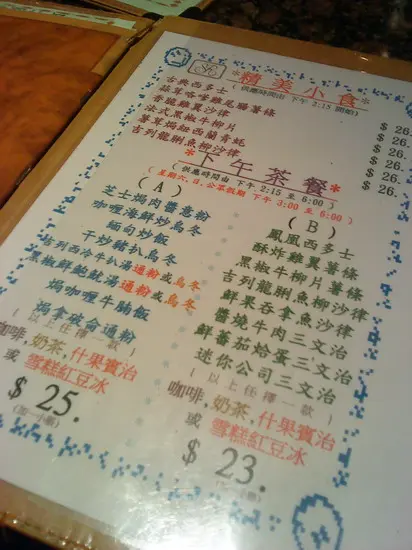 *精美小食*
(供應時間由 下午 2:15 開始)
古典西多士 $26.
蒜茸咯嗲雞尾腸薯條 $26.
香龍雞翼沙律 $26.
法式黑椒牛柳片 $26.
薯草焗紐西蘭青蠔 $26.
吉列龍脷魚柳沙律 $26.
*下午茶餐*
(供應時間由 下午 2:15 至 6:00)
(星期六.日.公眾假期 下午 3:00 至 6:00)
(A)
芝士焗肉醬意粉
咖喱海鮮炒烏冬
緬甸炒飯
干炒豬扒烏冬
吉列西冷牛扒湯通粉或烏冬
黑椒鮮鮑魷湯通粉或烏冬
焗咖喱牛腩飯
焗拿破侖通粉
(以上任擇一款)
咖啡,奶茶,什果賓治
或 雪糕紅豆冰
$25.
(加一小賬)
(B)
鳳凰西多士
酥炸雞翼薯條
黑椒牛柳片薯條
吉列龍脷魚柳沙律
鮮果吞拿魚沙律
醬燒牛肉三文治
鮮蕃茄焓蛋三文治
迷你公司三文治
(以上任擇一款)
咖啡,奶茶,什果賓治
或 雪糕紅豆冰
$23.